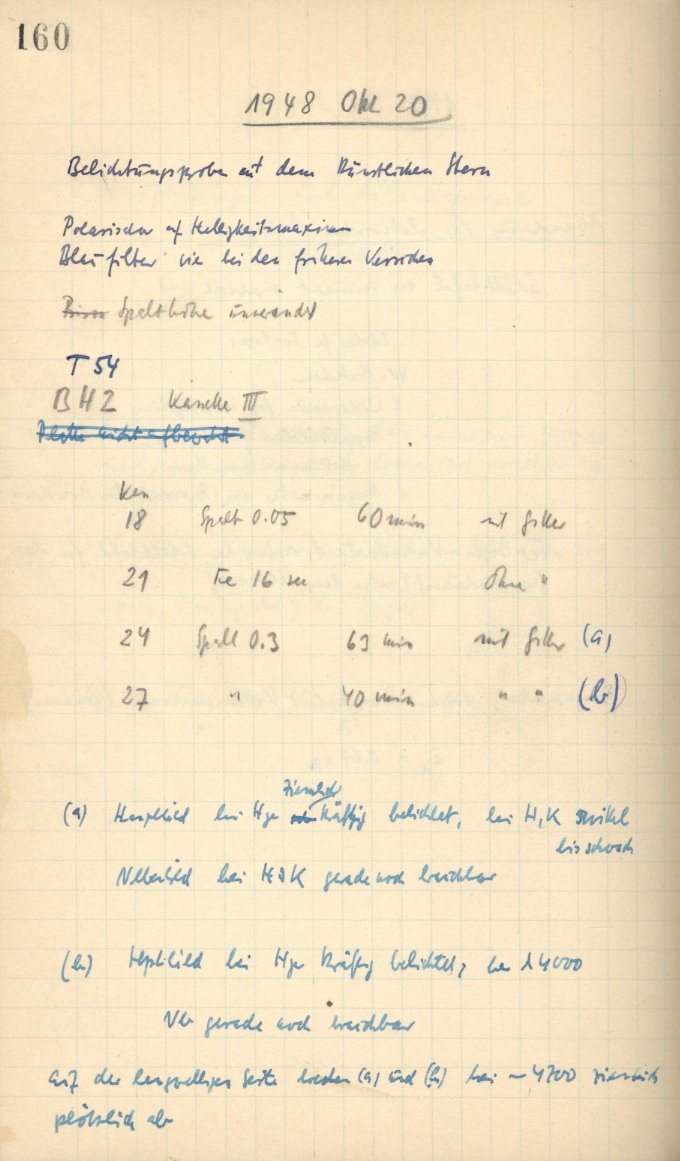 160
1948 Okt 20
Belichtungsproben mit dem Künstlichen Stern
Polarisator auf Helligkeitsmaximum
Blaufilter wie bei den früheren Versuchen
Spalthöhe unverändert
T 54
BH2 Kassette III
Platte nicht aufbewahrt
18 Spalt 0.05 60 min mit Filter
21 Fe 16 sec ohne "
24 Spalt 0.3 63 min mit Filter (a)
27 " 40 min " " (b)
ziemlich
(a) Hauptbild bei Hγ kräftig belichtet, bei H, K
bis schwach
Nebenbild bei H & K gerade noch brauchbar
(b) Hptbild bei Hγ kräftig belichtet, bei λ 4000
Nb gerade noch brauchbar
auf der langwelligen Seite brechen (a) und (b) bei ~ 4700 ziemlich
plötzlich ab